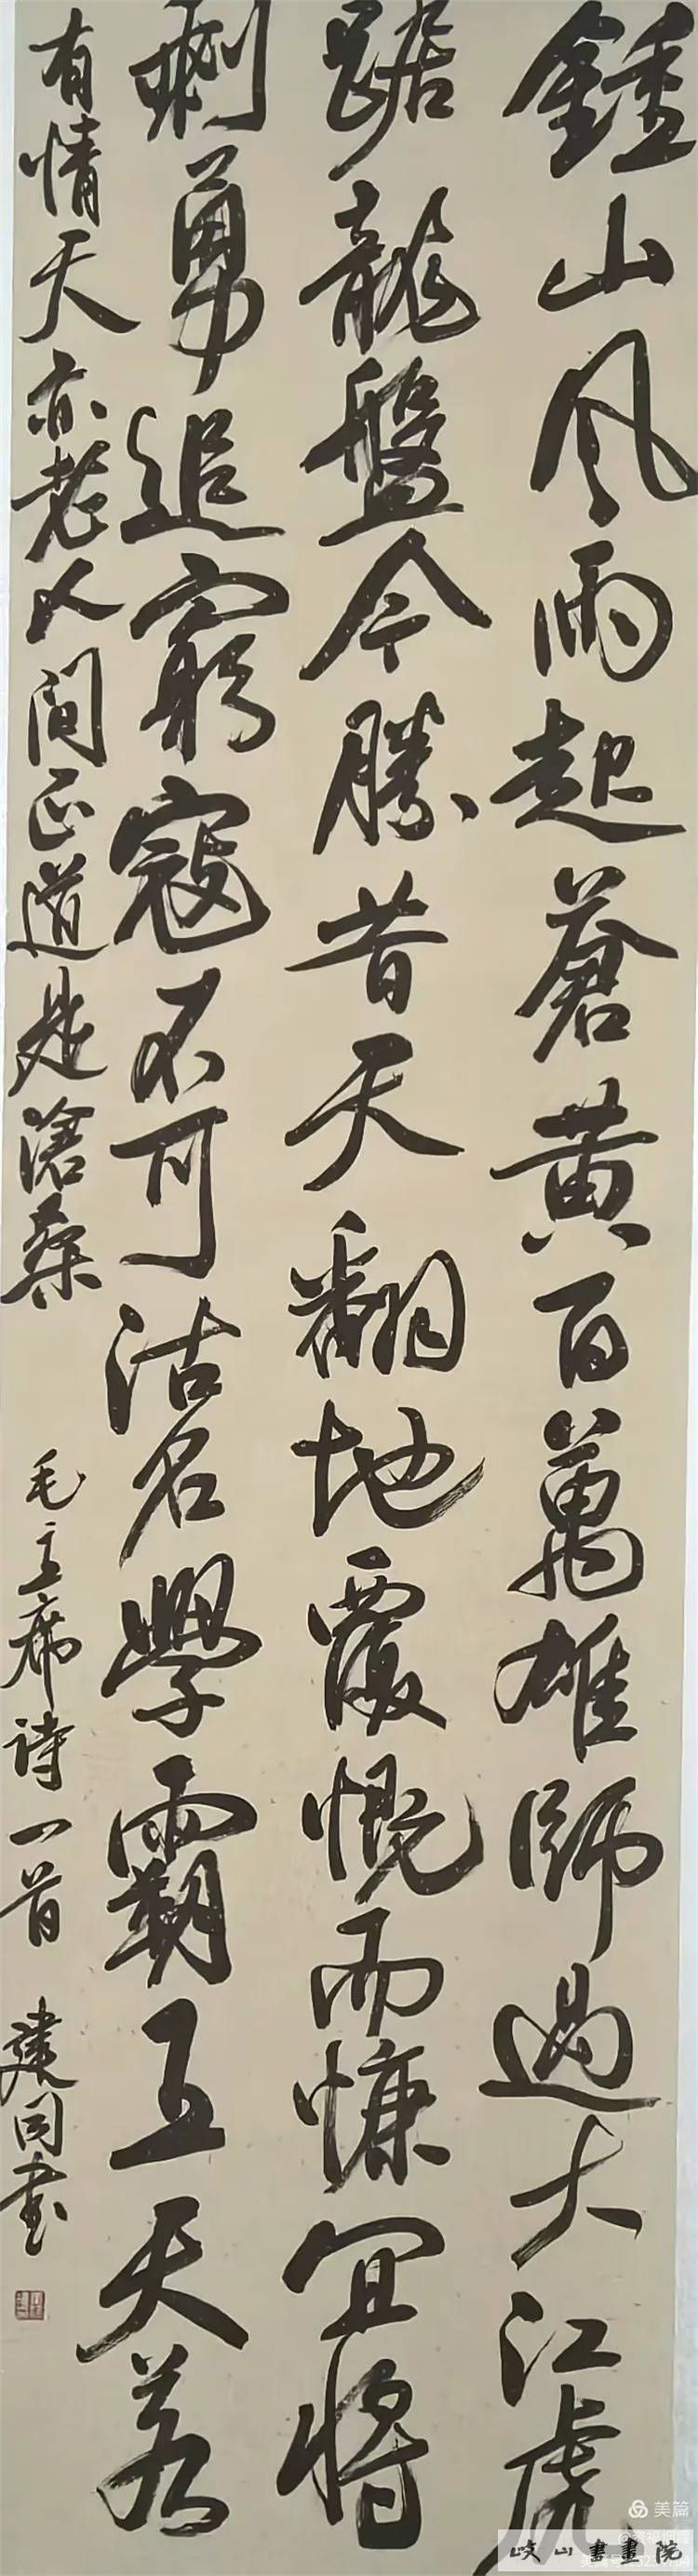 鍾山风雨起蒼黄百萬雄師過大江虎
踞龍盤今勝昔天翻地覆慨而慷宜將
剩勇追窮寇不可沽名學霸王天若
有情天亦老人间正道是滄桑 毛主席诗一首 建同书
美篇
岐山書畫院